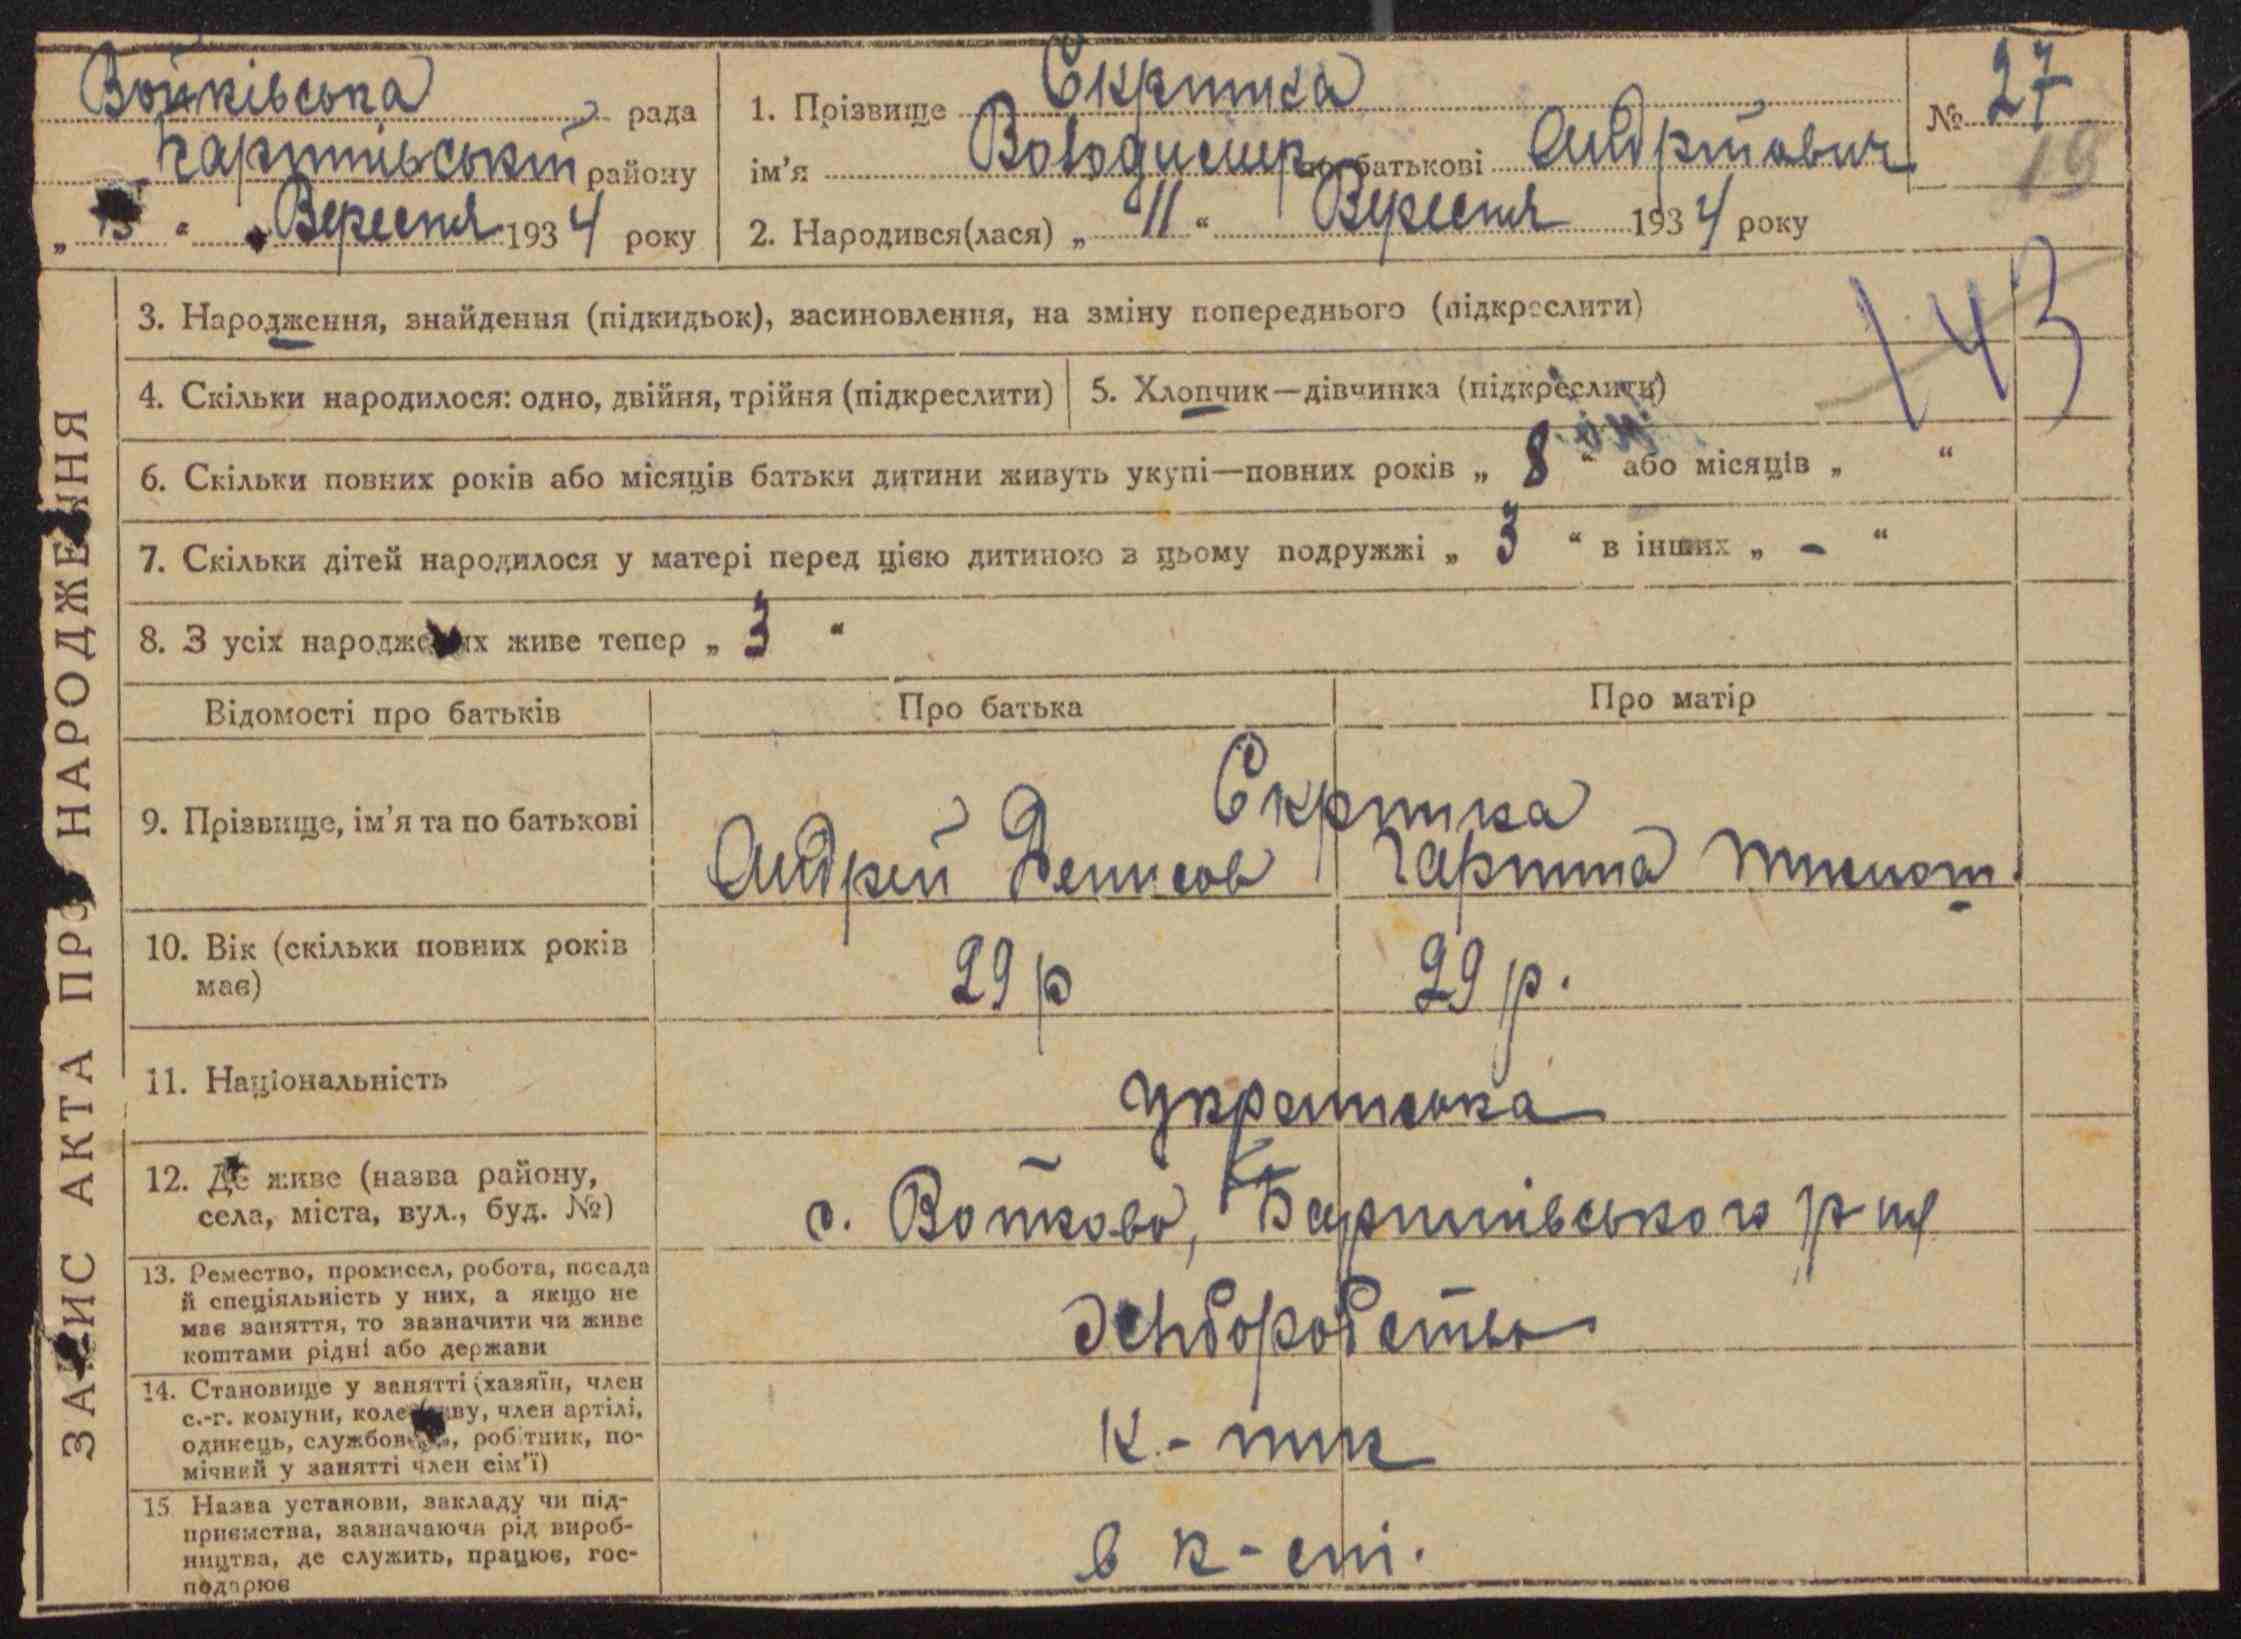 Войківська рада
Баришівський району
„ 13 “ Вересня 1934 року
1. Прізвище Скрипка
ім’я Володимир по батькові Андрійович
2. Народився(лася) „ 11 “ Вересня 1934 року
№ 27
19
143
ЗАПИС АКТА ПРО НАРОДЖЕННЯ
3. Народження, знайдення (підкидьок), засиновлення, на зміну попереднього (підкреслити)
4. Скільки народилося: одно, двійня, трійня (підкреслити)
5. Хлопчик—дівчинка (підкреслити)
6. Скільки повних років або місяців батьки дитини живуть укупі—повних років „ 8 “ або місяців „ “
7. Скільки дітей народилося у матері перед цією дитиною в цьому подружжі „ 3 “ в інших „ - “
8. З усіх народжених живе тепер „ 3 “
Відомості про батьків
Про батька
Про матір
9. Прізвище, ім’я та по батькові
Скрипка
Андрей Денисов
10. Вік (скільки повних років
має)
29 р
29 р.
11. Національність
Українська
12. Де живе (назва району,
села, міста, вул., буд. №)
с. Войково, Баришівського р-ну
13. Ремество, промисел, робота, посада
й спеціяльність у них, а якщо не
має заняття, то зазначити чи живе
коштами рідні або держави
14. Становище у занятті (хазяїн, член
с.-г. комуни, колективу, член артілі,
одинець, службовець, робітник, по-
мічний у занятті член сім’ї)
к-ник
15 Назва установи, закладу чи під-
приємства, зазначаючи рід вироб-
ництва, де служить, працює, гос-
подарює
в к-спі.